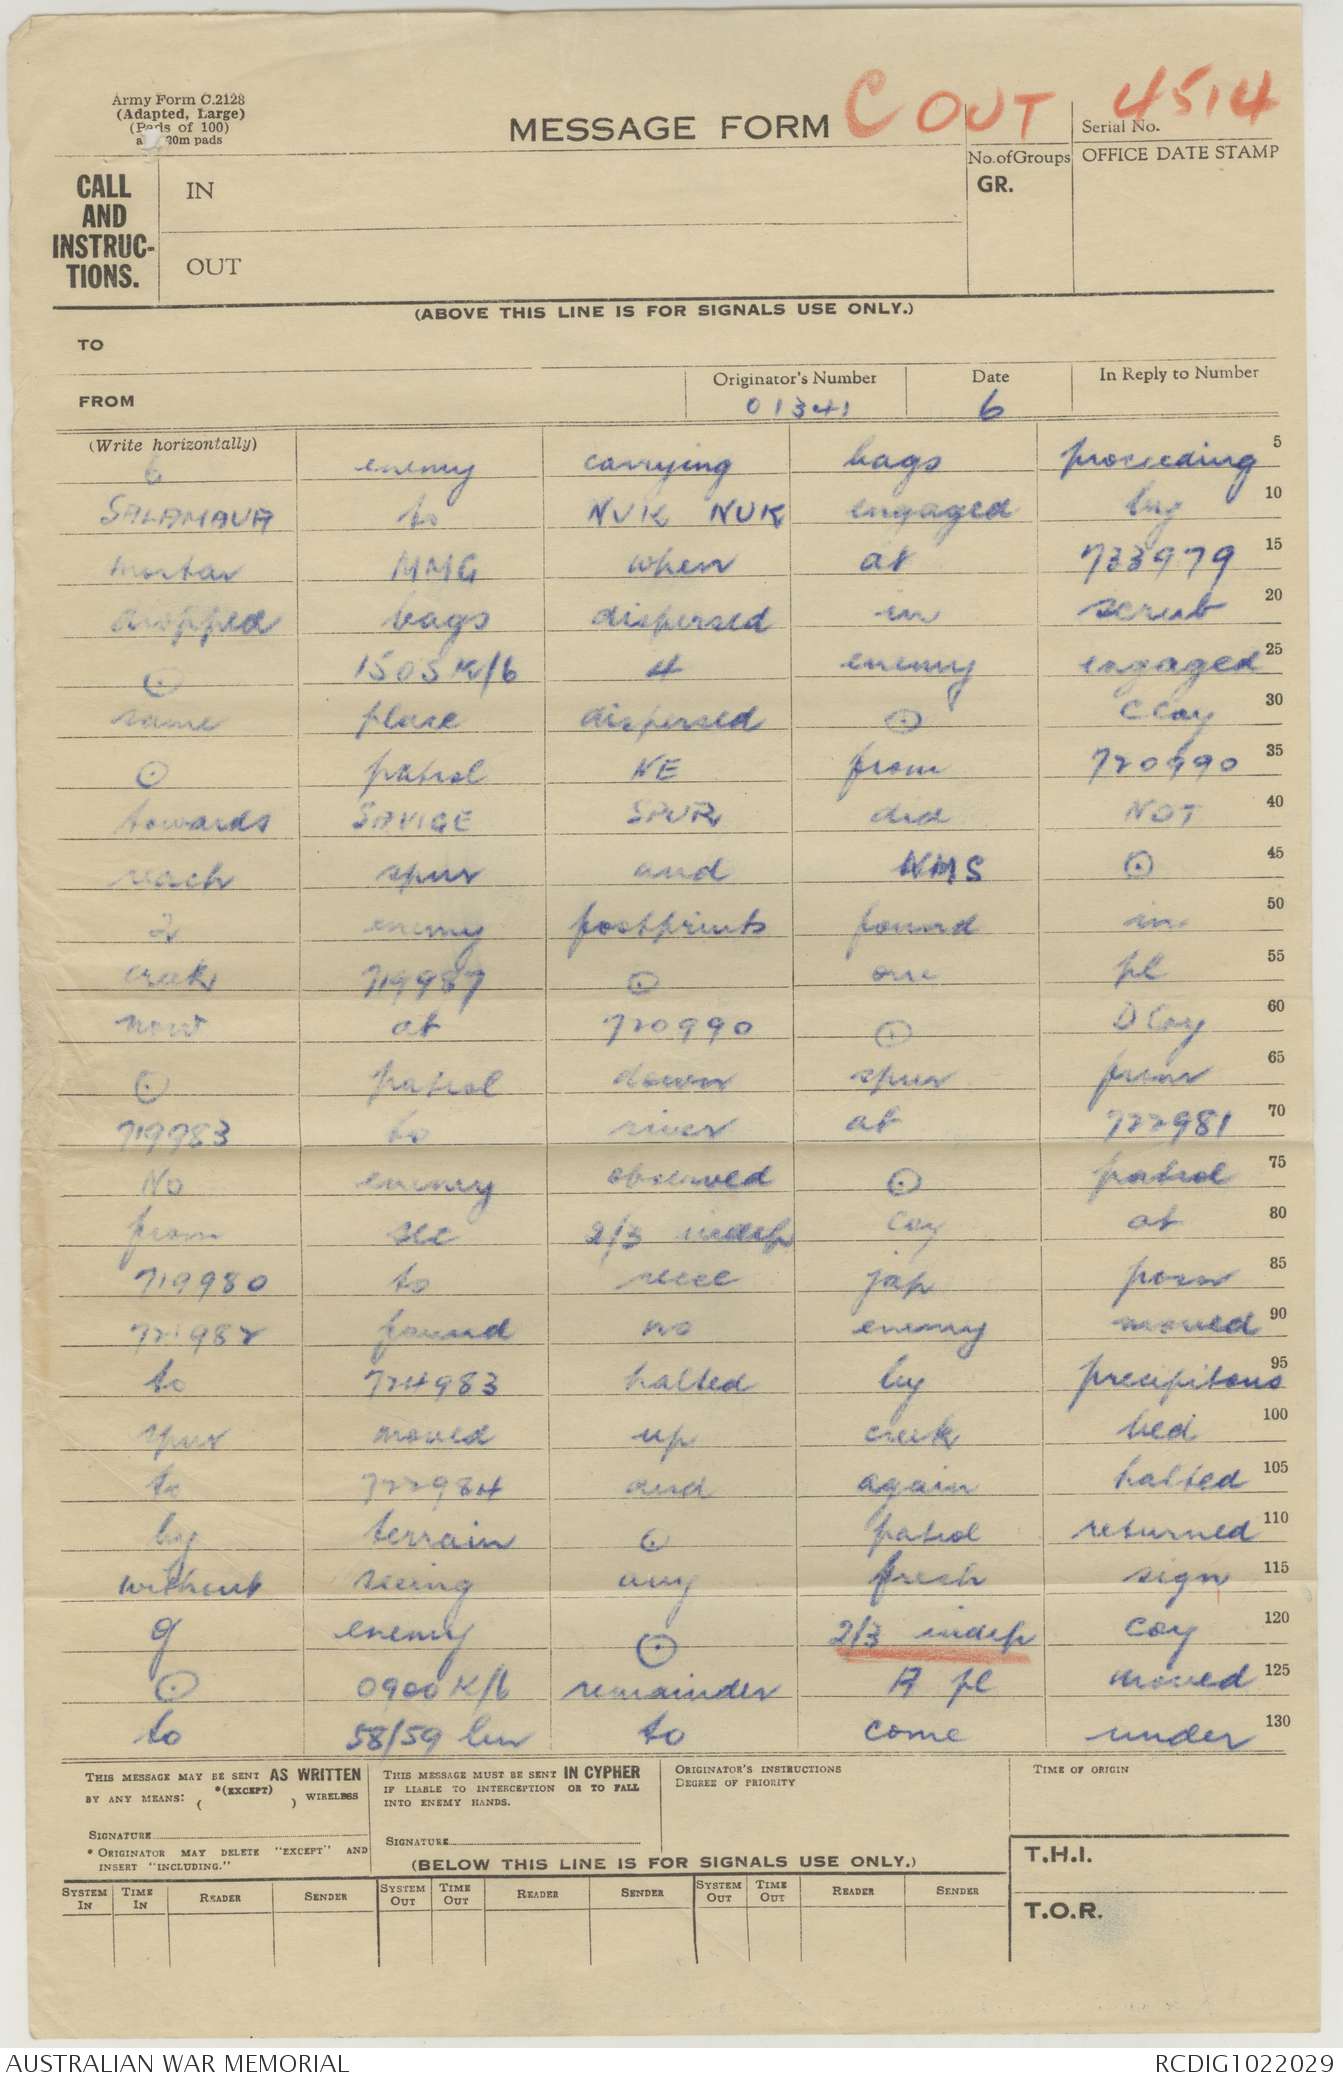 Army Form C.2128
(Adapted, Large)
(Pads of 100)
30m pads
MESSAGE FORM
C OUT
4514
Serial No.
No. of Groups
GR.
OFFICE DATE STAMP
CALL
AND
INSTRUC-
TIONS.
IN
OUT
(ABOVE THIS LINE IS FOR SIGNALS USE ONLY.)
TO
FROM
Originator's Number
01341
Date
6
In Reply to Number
(Write horizontally)
6 enemy carrying bags proceeding 5
SALAMAUA to NUK NUK engaged by 10
mortar MMG when at 733979 15
dropped bags dispersed in scrub 20
⊙ 1505K/6 4 enemy engaged 25
same place dispersed ⊙ C Coy 30
⊙ patrol NE from 720990 35
towards SAVIGE SPUR did NOT 40
reach spur and NMS ⊙ 45
2 enemy footprints found in 50
crek 719987 ⊙ one pl 55
now at 720990 ⊙ D Coy 60
⊙ patrol down spur from 65
719983 to river at 722981 70
No enemy observed ⊙ patrol 75
from sec 2/3 indep coy at 80
719980 to recce jap posn 85
721982 found no enemy moved 90
to 724983 halted by precipitous 95
spur moved up creek bed 100
to 722984 and again halted 105
by terrain ⊙ patrol returned 110
without seeing any fresh sign 115
of enemy ⊙ 2/3 indep coy 120
⊙ 0900K/6 remainder A pl moved 125
to 58/59 bn to come under 130
THIS MESSAGE MAY BE SENT AS WRITTEN
BY ANY MEANS: *(EXCEPT) ( ) WIRELESS
SIGNATURE
* ORIGINATOR MAY DELETE "EXCEPT" AND
INSERT "INCLUDING."
THIS MESSAGE MUST BE SENT IN CYPHER
IF LIABLE TO INTERCEPTION OR TO FALL
INTO ENEMY HANDS.
SIGNATURE
ORIGINATOR'S INSTRUCTIONS
DEGREE OF PRIORITY
TIME OF ORIGIN
(BELOW THIS LINE IS FOR SIGNALS USE ONLY.)
T.H.I.
T.O.R.
SYSTEM IN TIME IN READER SENDER SYSTEM OUT TIME OUT READER SENDER SYSTEM OUT TIME OUT READER SENDER
AUSTRALIAN WAR MEMORIAL
RCDIG1022029